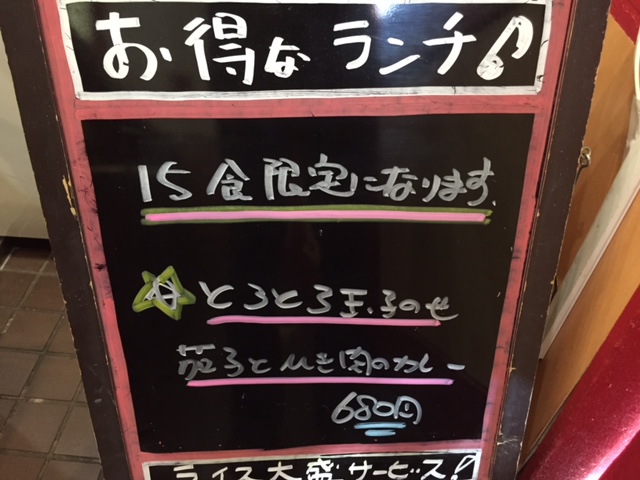 お得なランチ♪
15食限定になります。
☆とろとろ玉子のせ
茄子とひき肉のカレー
680円
ライス大盛サービス!